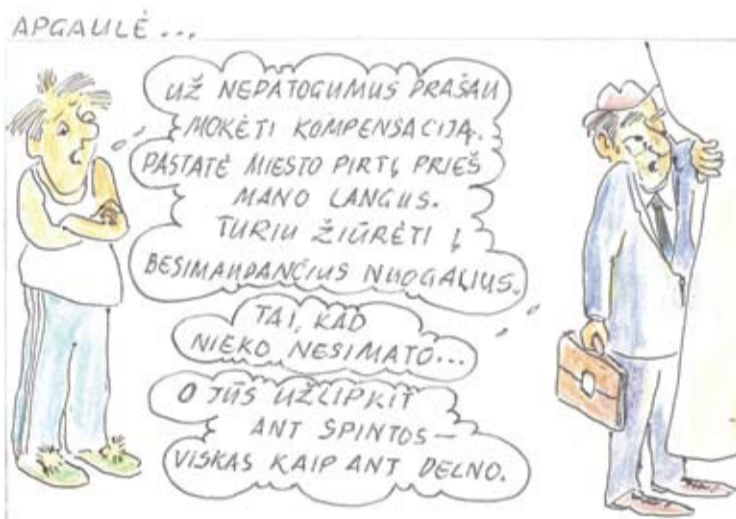 APGAULĖ...
UŽ NEPATOGUMUS PRAŠAU
MOKĖTI KOMPENSACIJĄ.
PASTATĖ MIESTO PIRTĮ PRIEŠ
MANO LANGUS.
TURIU ŽIŪRĖTI Į
BESIMAUDANČIUS NUOGALIUS.
TAI, KAD
NIEKO NESIMATO...
O JŪS UŽLIPKIT
ANT SPINTOS—
VISKAS KAIP ANT DELNO.